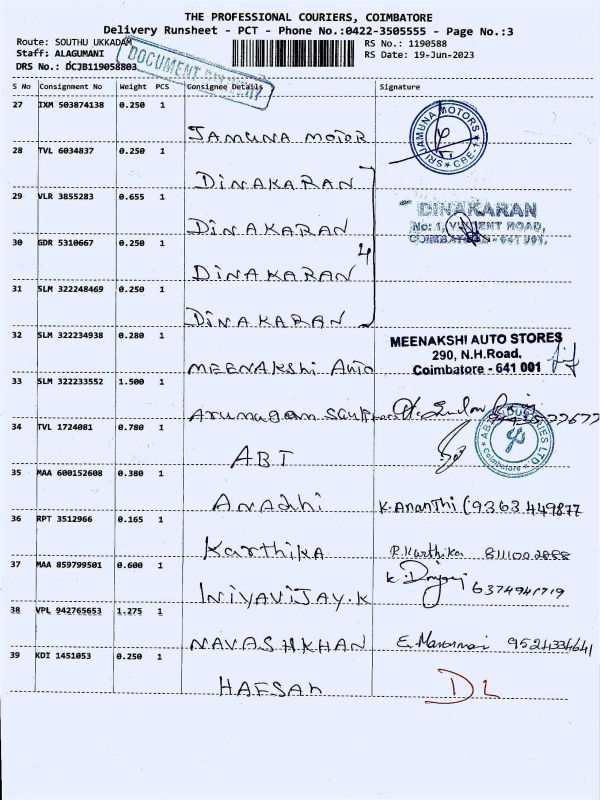 THE PROFESSIONAL COURIERS, COIMBATORE
Delivery Runsheet - PCT - Phone No.:0422-3505555 - Page No.:3
Route: SOUTHU UKKADAM
RS No.: 1190588
Staff: ALAGUMANI
RS Date: 19-Jun-2023
DRS No.: DCJB119058803
DOCUMENT DELIVERY
S No Consignment No Weight PCS Consignee Details Signature
27 IXM 503874138 0.250 1
JAMUNA MOTOR
SRI JAMUNA MOTORS CBE-1
28 TVL 6034837 0.250 1
DINAKARAN
29 VLR 3855283 0.655 1
DINAKARAN
DINAKARAN
No: 1, VINCENT ROAD,
COIMBATORE - 641 001.
30 GDR 5310667 0.250 1
DINAKARAN
4
31 SLM 322248469 0.250 1
DINAKARAN
32 SLM 322234938 0.280 1
MEENAKSHI AUTO
MEENAKSHI AUTO STORES
290, N.H.Road,
Coimbatore - 641 001
33 SLM 322233552 1.500 1
Arumugam
34 TVL 1724081 0.780 1
ABT
Coimbatore
35 MAA 600152608 0.380 1
Anadhi
K. Ananthi (9363449877
36 RPT 3512966 0.165 1
Karthika
P. Karthika
37 MAA 859799501 0.600 1
INIYAVIJAY.K
6374941719
38 VPL 942765653 1.275 1
NAVASHKHAN
9524334641
39 KDI 1451053 0.250 1
HAFSAH
DL